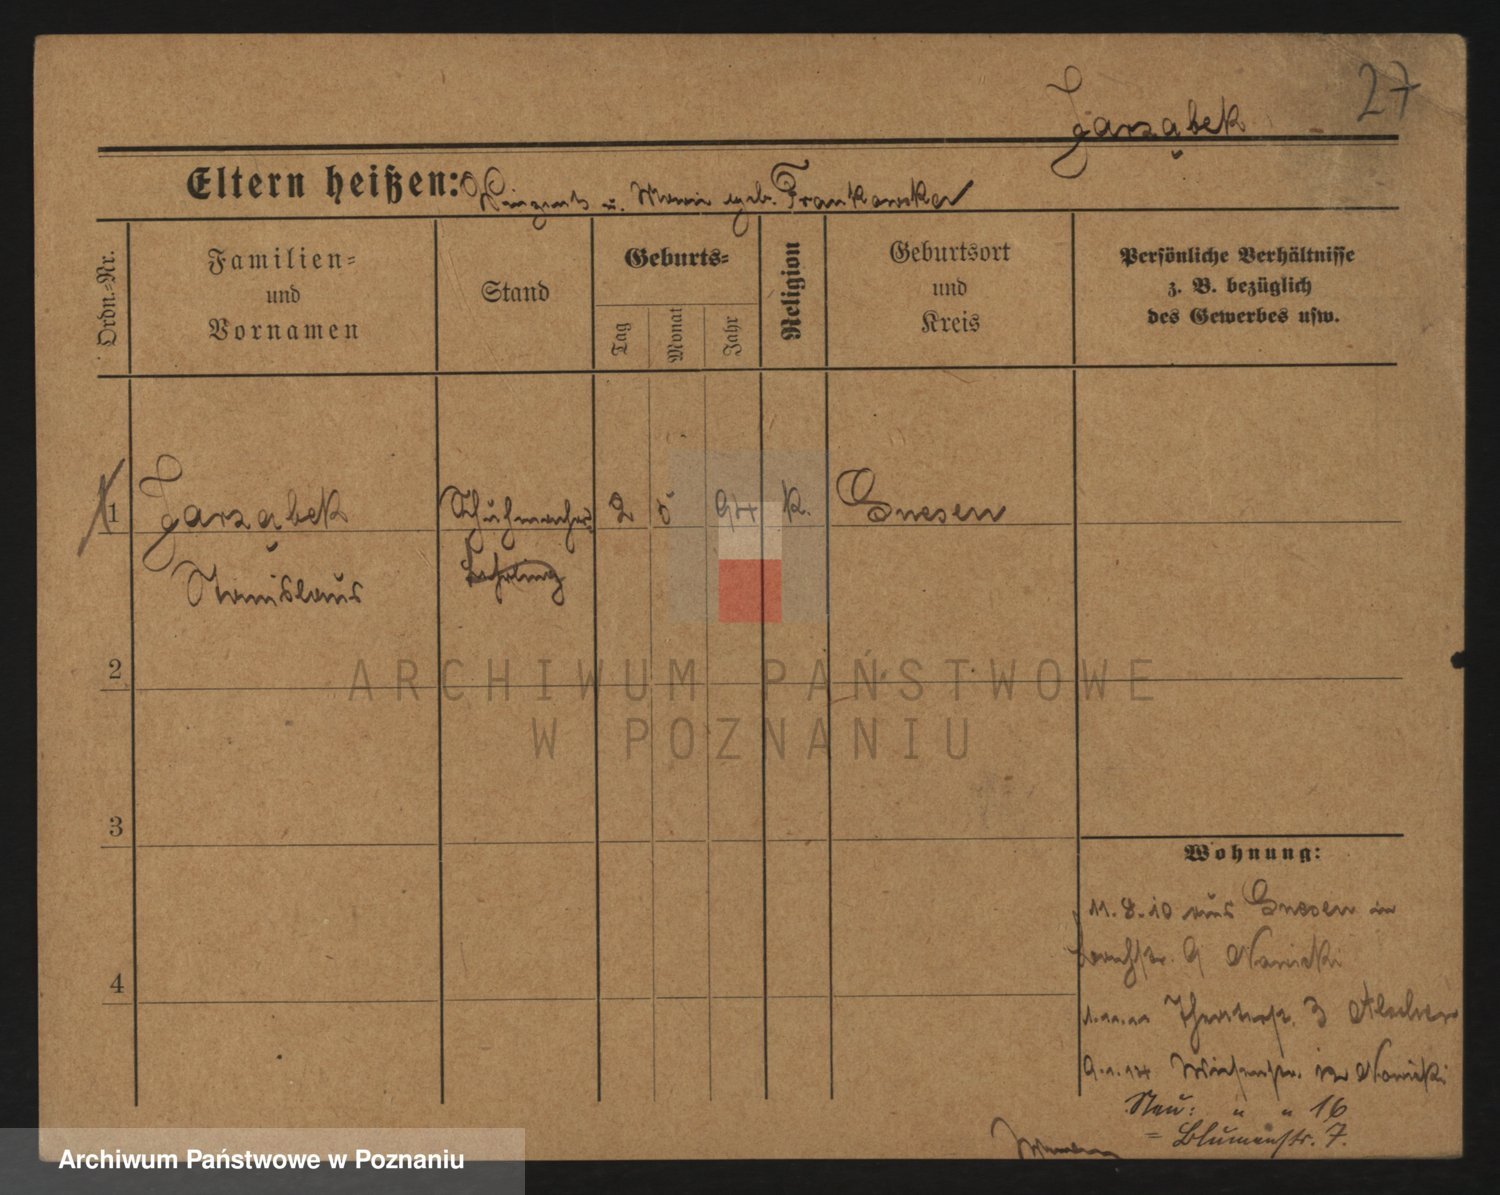 27
Jarząbek
Eltern heißen: Vinzent u. Maria geb. Frankowska
Ordn.-Nr.
Familien-
und
Vornamen
Stand
Geburts-
Tag
Monat
Jahr
Religion
Geburtsort
und
Kreis
Persönliche Verhältnisse
z. B. bezüglich
des Gewerbes usw.
1 Jarząbek Schuhmacher 2 5 94 k. Gnesen
Stanislaus Lehrling
2
3
4
Wohnung:
11.8.10 aus Gnesen in
9 Nowicki
1.11.11 3
9.1.14 12 Nowicki
Neu: " " 16
= Blumenstr. 7.
ARCHIWUM PAŃSTWOWE
W POZNANIU
Archiwum Państwowe w Poznaniu